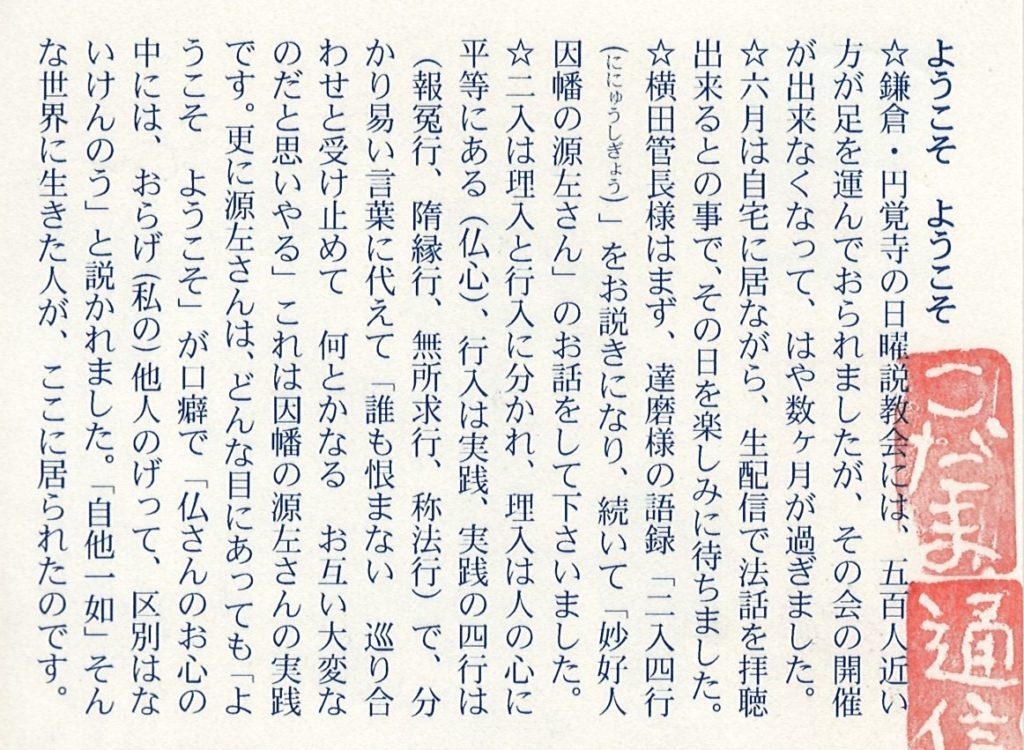 ようこそ　ようこそ
☆鎌倉・円覚寺の日曜説教会には、五百人近い
方が足を運んでおられましたが、その会の開催
が出来なくなって、はや数ヶ月が過ぎました。
☆六月は自宅に居ながら、生配信で法話を拝聴
出来るとの事で、その日を楽しみに待ちました。
☆横田管長様はまず、達磨様の語録「二入四行
（ににゅうしぎょう）」をお説きになり、続いて「妙好人
因幡の源左さん」のお話をして下さいました。
☆二入は理入と行入に分かれ、理入は人の心に
平等にある（仏心）、行入は実践、実践の四行は
（報冤行、隋縁行、無所求行、称法行）で、分
かり易い言葉に代えて「誰も恨まない　巡り合
わせと受け止めて　何とかなる　お互い大変な
のだと思いやる」これは因幡の源左さんの実践
です。更に源左さんは、どんな目にあっても「よ
うこそ　ようこそ」が口癖で「仏さんのお心の
中には、おらげ（私の）他人のげって、区別はな
いけんのう」と説かれました。「自他一如」そん
な世界に生きた人が、ここに居られたのです。
こだま通信